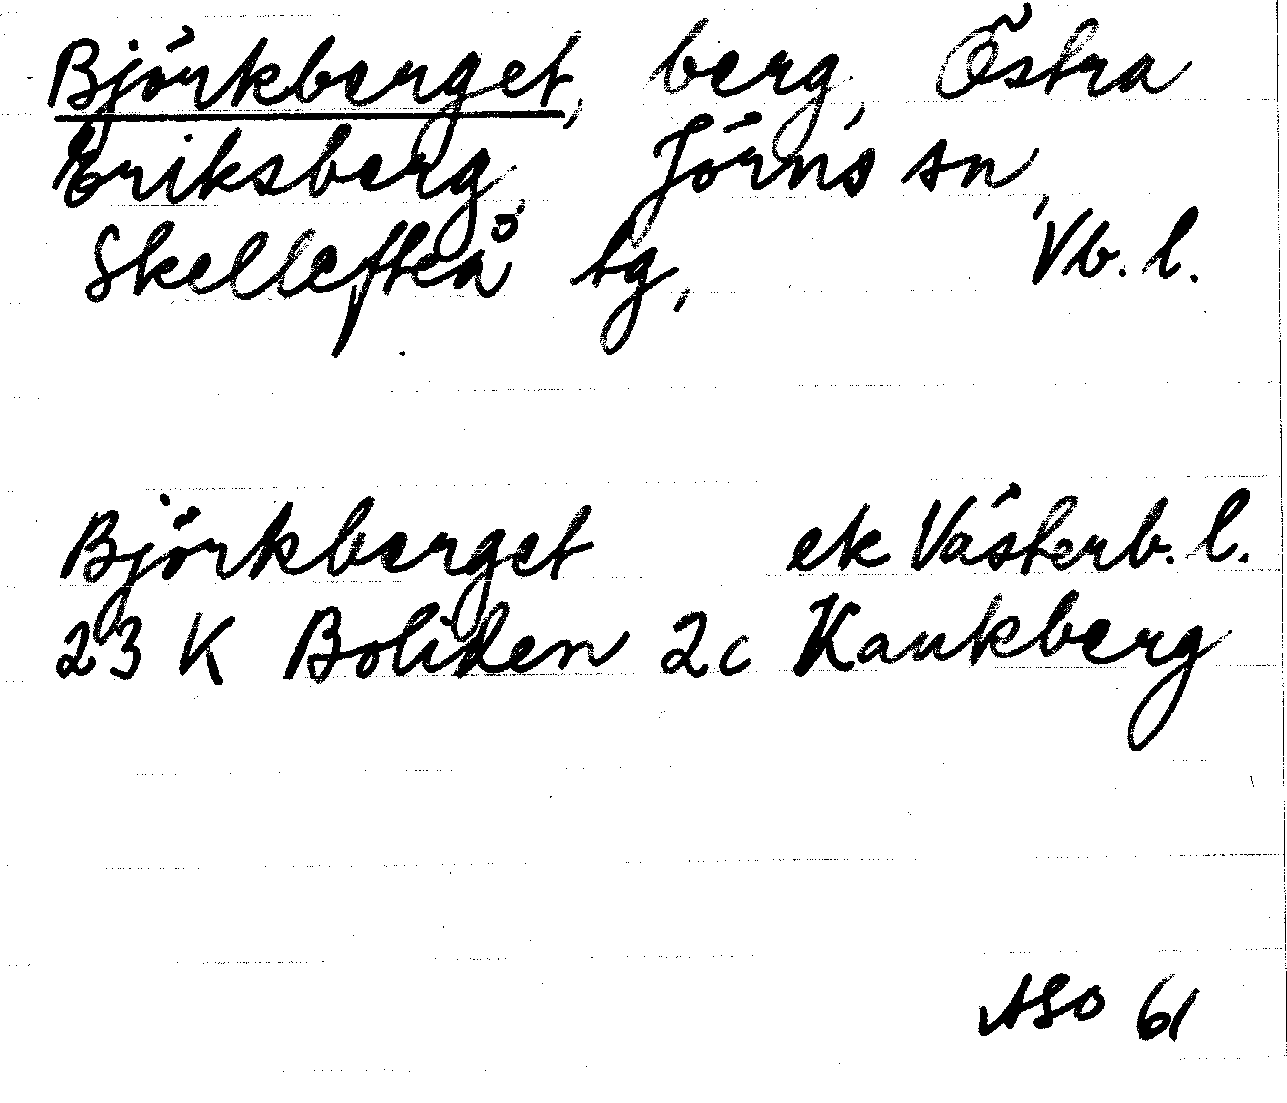 Björkberget, berg, Östra
Eriksberg, Jörns sn,
Skellefteå tg, Vb. l.
Björkberget ek Västerb. l.
23 K Boliden 2c Kankberg
ASO 61